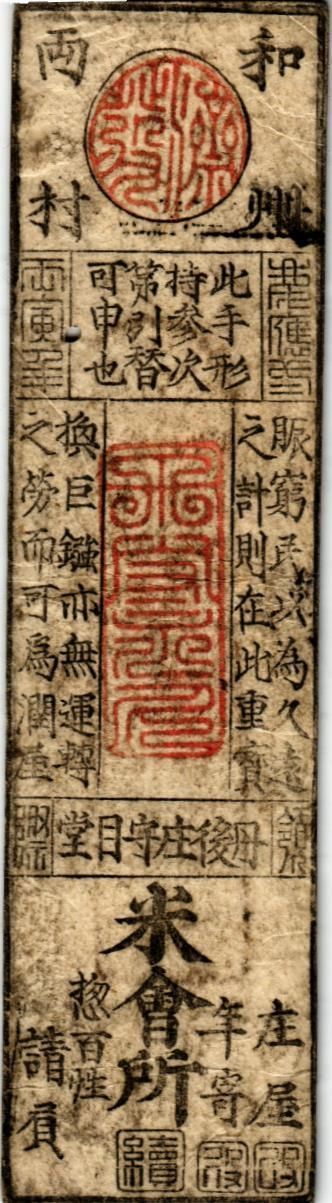 和州
両村
此手形
持参次
第引替
可申也
丙寅年
賑窮民以為久遠
之計則在此重寶
換巨鏹亦無運轉
之勞而可為潤屋
丹後庄守目堂
米會所
庄屋
年寄
惣百姓
請負
續